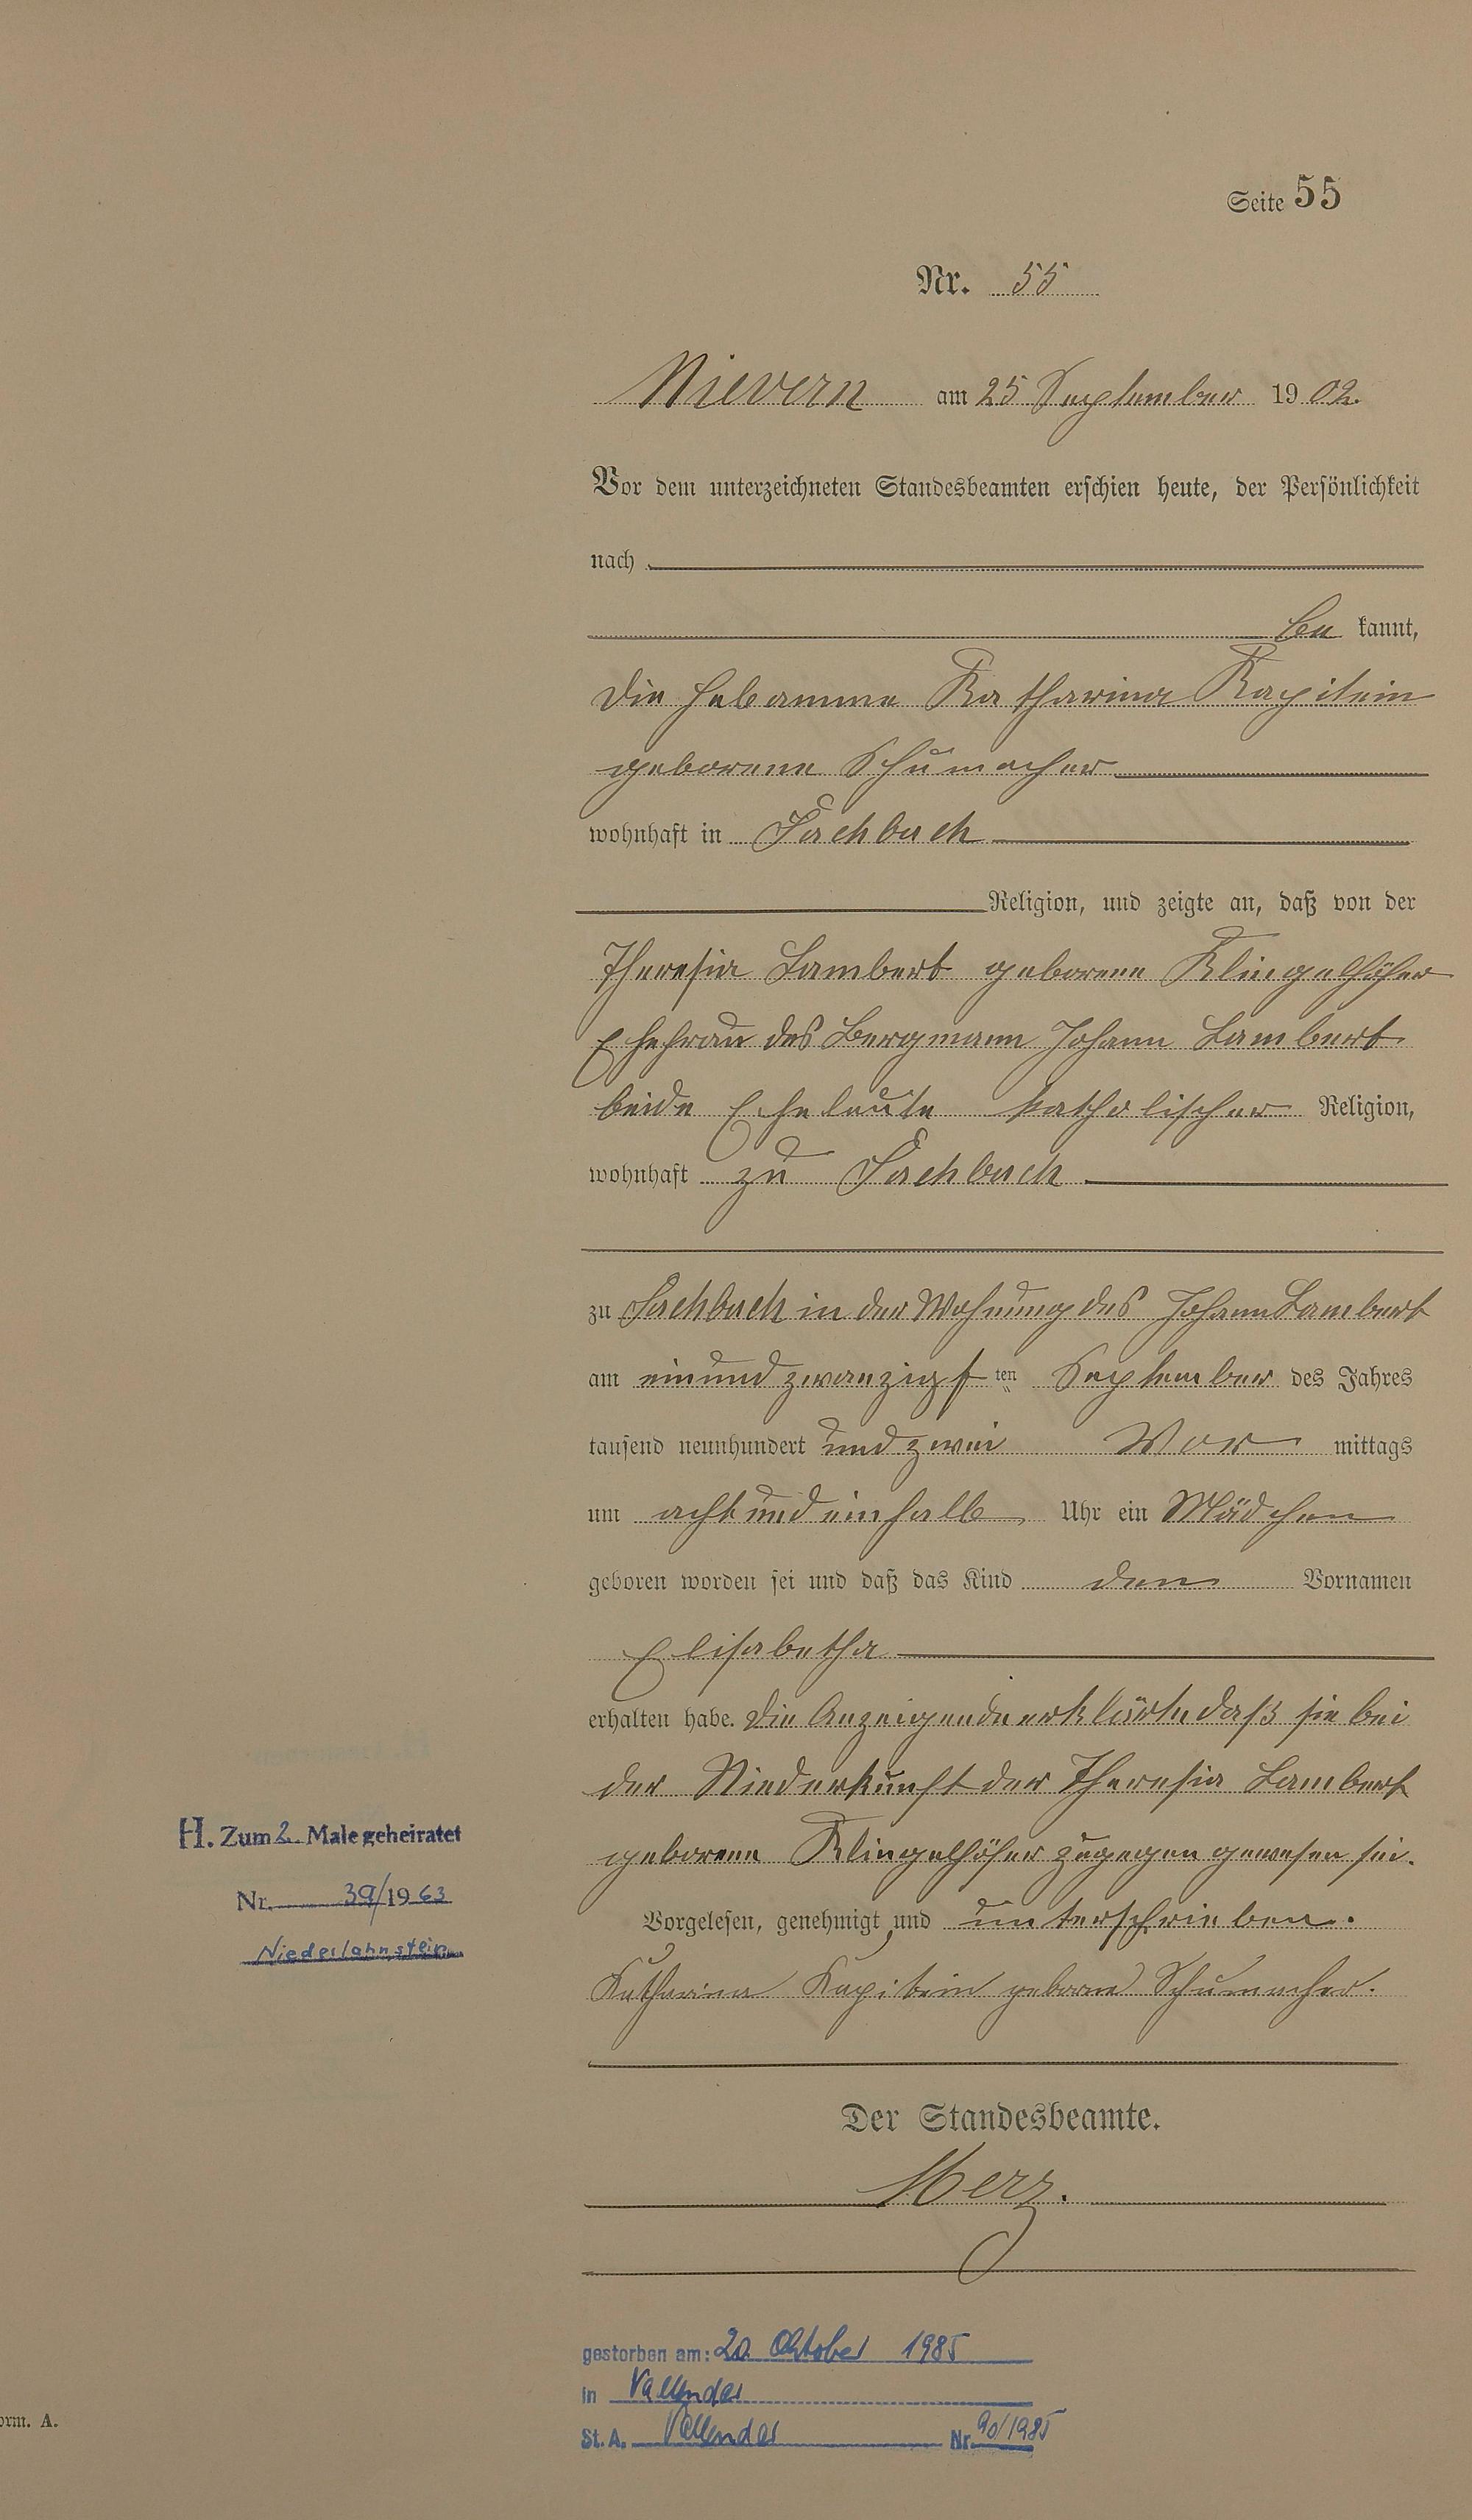 Seite 55
Nr. 55
Nievern am 25 September 1902.
Vor dem unterzeichneten Standesbeamten erschien heute, der Persönlichkeit
nach
be kannt,
die Hebamme Katharina Kapitein
geborene Schumacher
wohnhaft in Fachbach
Religion, und zeigte an, daß von der
Theresia Lambert geborene Klingelhöfer
Ehefrau des Bergmann Johann Lambert
beide Eheleute katholischer Religion,
wohnhaft zu Fachbach
zu Fachbach in der Wohnung des Johann Lambert
am einundzwanzigsten September des Jahres
tausend neunhundert und zwei Vor mittags
um acht und einhalb Uhr ein Mädchen
geboren worden sei und daß das Kind den Vornamen
Elisabetha
erhalten habe. Die Anzeigende erklärte daß sie bei
der Niederkunft der Theresia Lambert
geborene Klingelhöfer zugegen gewesen sei.
Vorgelesen, genehmigt und unterschrieben.
Katharina Kapitein geborne Schumacher.
Der Standesbeamte.
Merz.
H. Zum 2. Male geheiratet
Nr. 39/1963
Niederlahnstein
gestorben am: 20. Oktober 1985
in Vallendar
St. A. Vallendar Nr. 90/1985
orm. A.